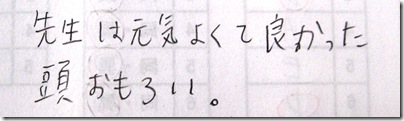 先生は元気よくて良かった
頭おもろい。